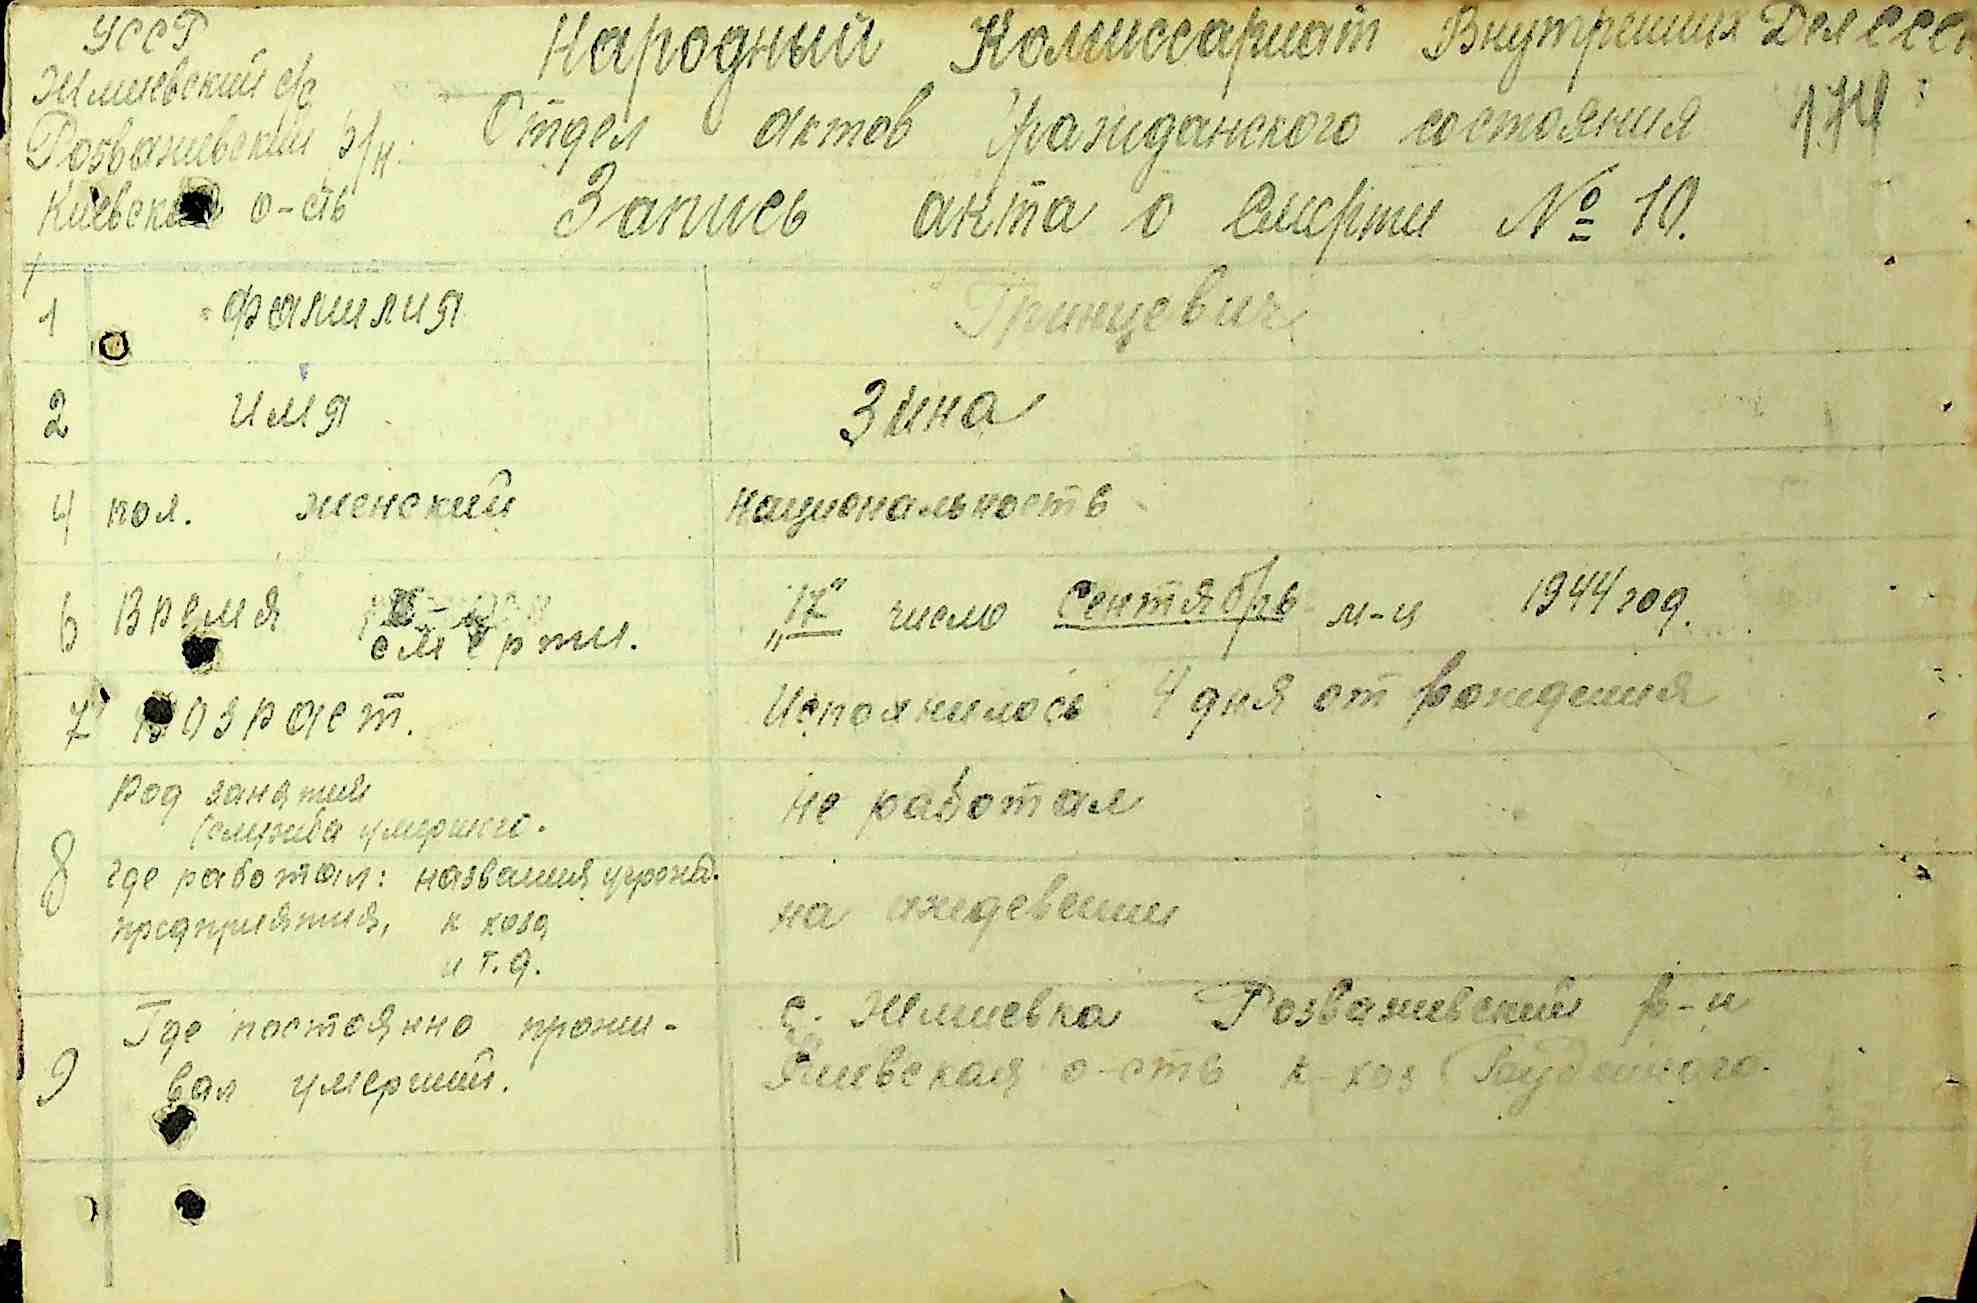 УССР
Жмиевский с/с
Розважевский р/н.
Киевский о-сть
Народный Комиссариат Внутрених Дел СССР
Отдел актов гражданского состояния
Запись акта о смерти № 10.
1 фамилия Гринцевич
2 имя Зина
4 пол. женский национальность
6 Время смерти. „17" число сентябрь м-ц 1944 год.
7 возраст. Исполнилось 4 дня от рождения
Род занятий не работал
(служба умершего.
8 где работал: названия учрежд.
предприятия, к хоза на иждевении
и т.д.
9 Где постоянно прожи- с. Жмиевка Розважевский р-н
вал умерший. Киевская о-сть к-хоз Будённого.